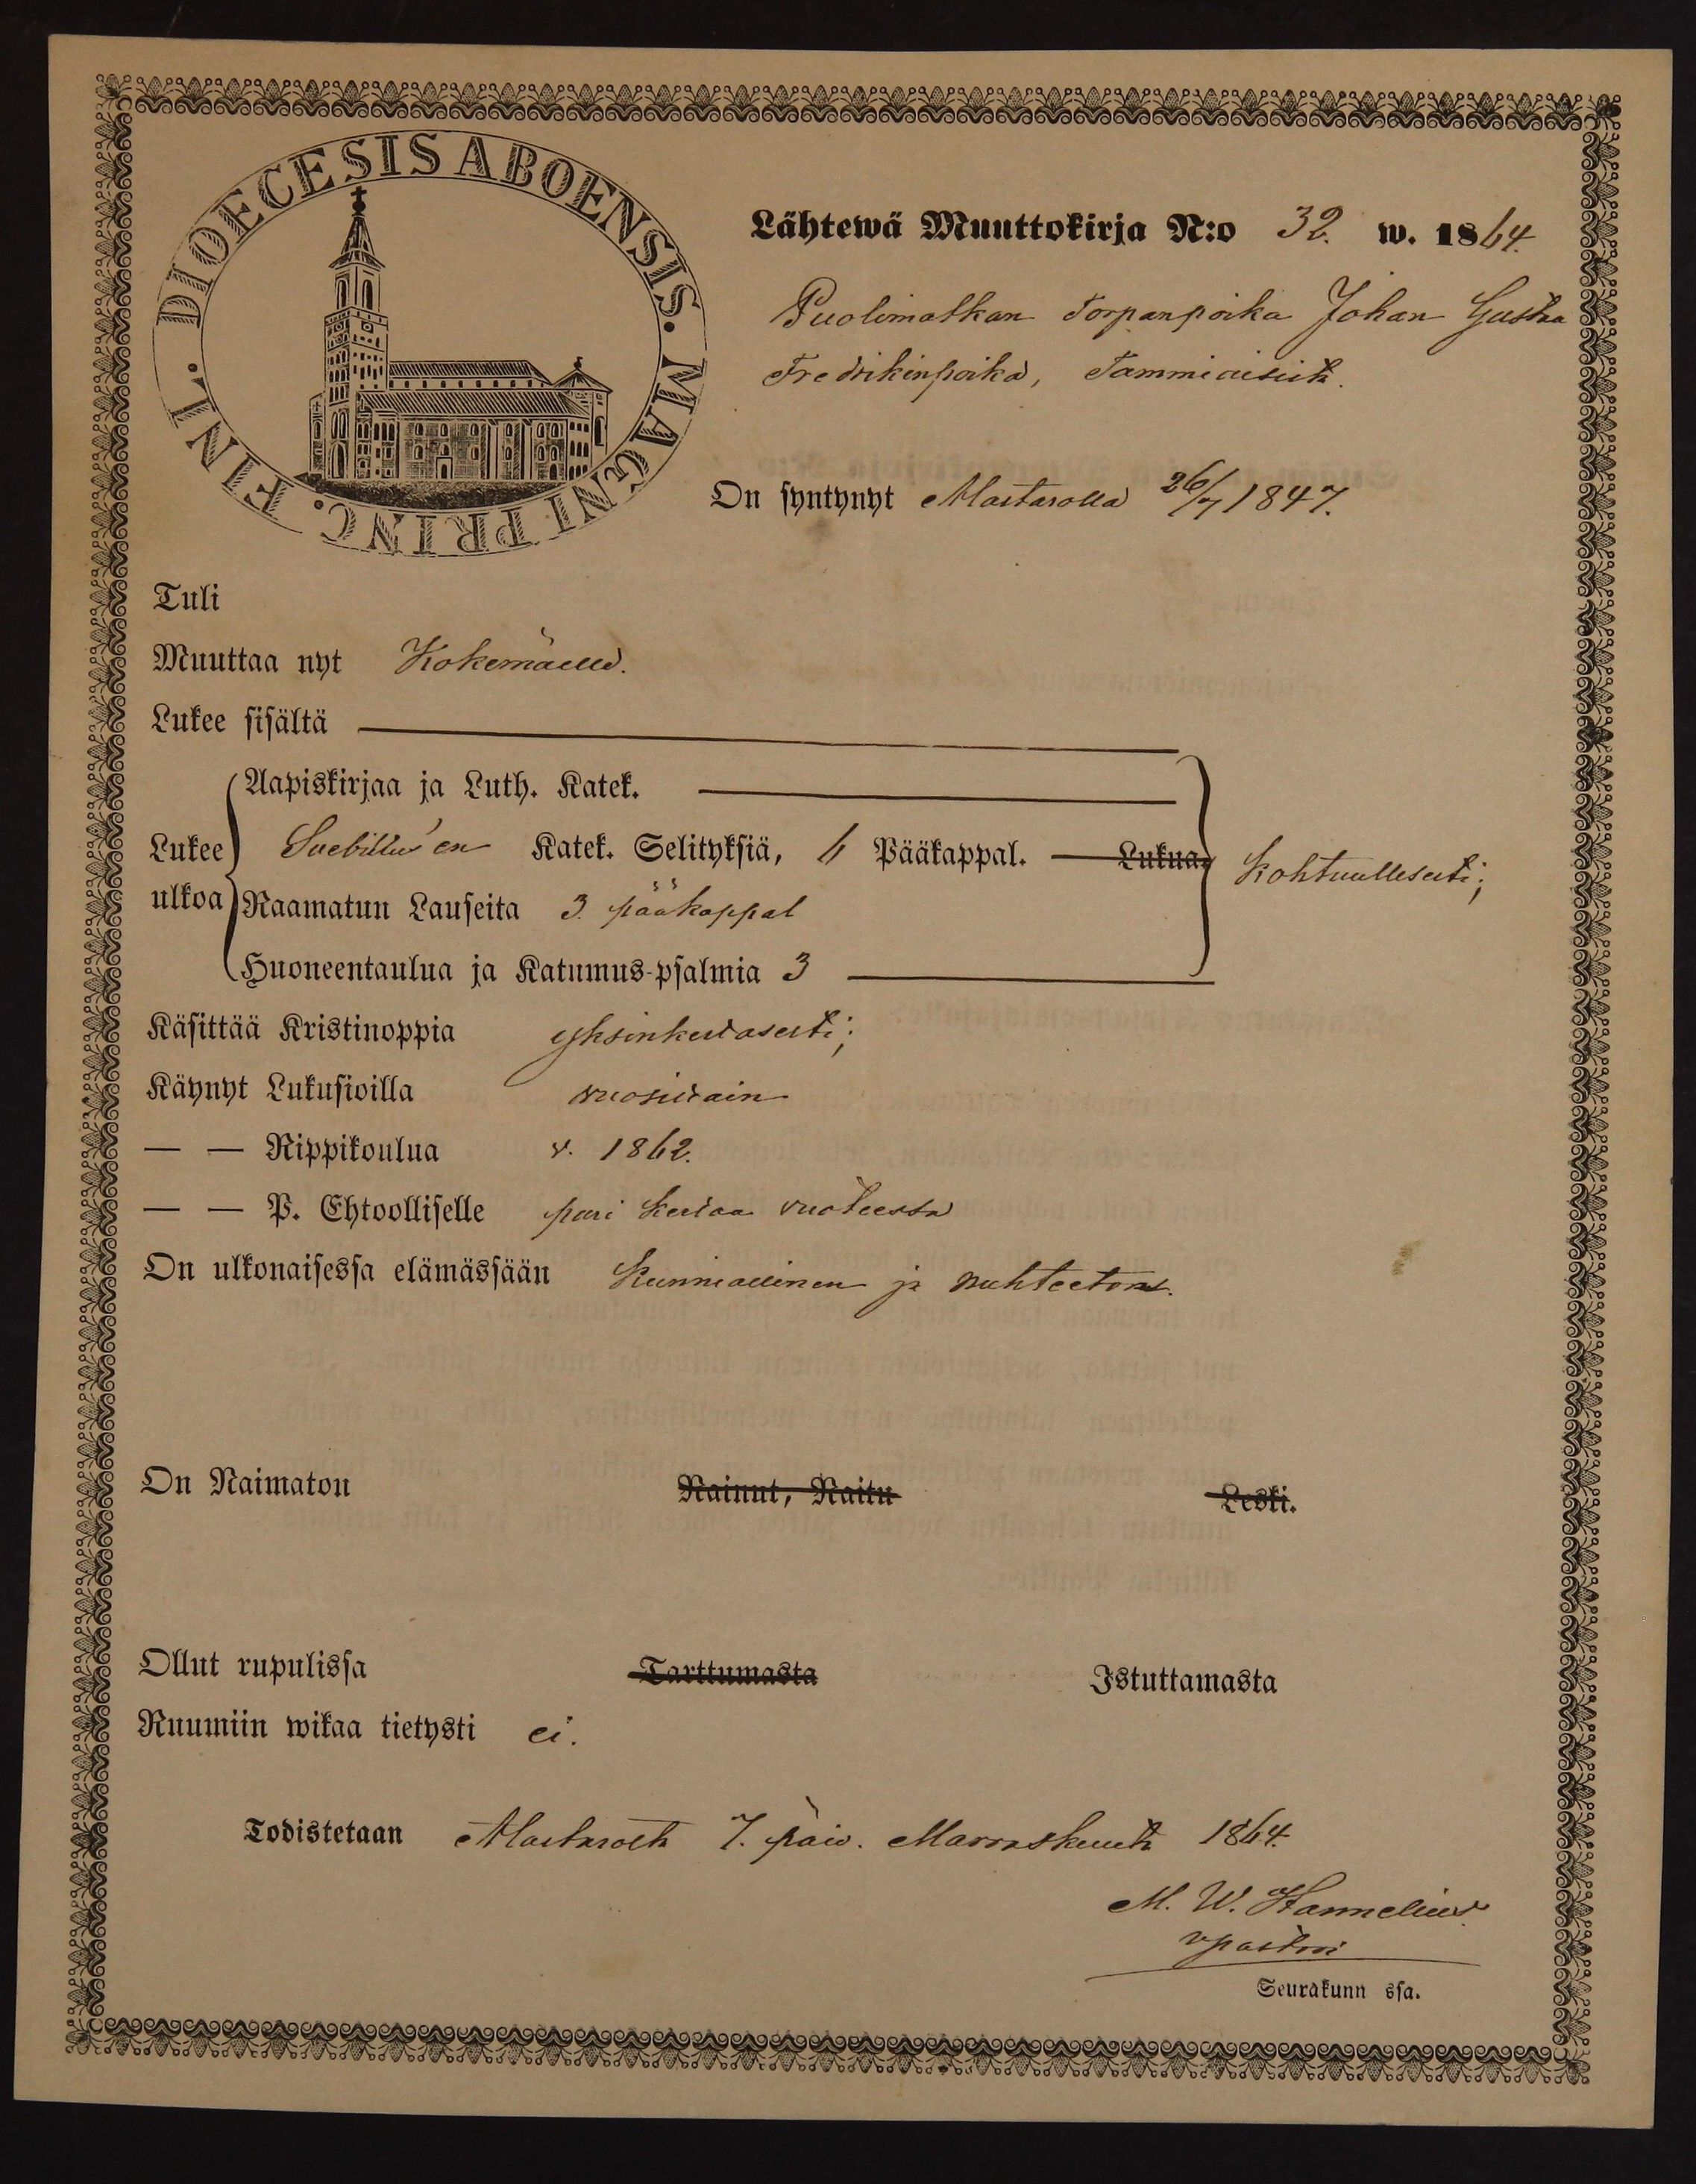 DIOECESIS ABOENSIS. MAGNI PRINC. FINL.
Lähtewä Muuttokirja N:o 32. w. 1864.
Puolimatkan Torpanpoika Johan Gusta
Fredrikinpoika, Tammiaisista.
On syntynyt Mastarolla 26/7 1847.
Tuli
Muuttaa nyt Kokemäelle.
Lukee sisältä
Aapiskirjaa ja Luth. Katek.
Lukee Svebilius'en Katek. Selityksiä, 6 Pääkappal. Lukua, Kohtuullisesti;
ulkoa Raamatun Lauseita 3. pääkappal
Huoneentaulua ja Katumus-psalmia 3
Käsittää Kristinoppia yksinkertasesti;
Käynyt Lukusioilla vuosittain
— — Rippikoulua v. 1862.
— — P. Ehtoolliselle pari kertaa vuoteessa
On ulkonaisessa elämässään Kunniallinen ja nuhteetoin.
On Naimaton Nainut, Naitu Leski.
Ollut rupulissa Tarttumasta Istuttamasta
Ruumiin wikaa tietysti ei.
Todistetaan 7. päiv. Marraskuuta 1864.
M. W. Hannelius
vpastori
Seurakunn ssa.